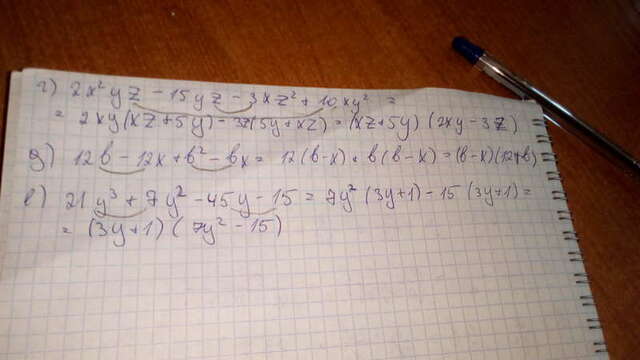 г) 2x²yz - 15yz - 3xz² + 10xy² =
= 2xy(xz+5y) - 3z(5y+xz) = (xz+5y) (2xy-3z)
д) 12в - 12x + в² - вx = 12(в-x) + в(в-x) = (в-x)(12+в)
е) 21y³ + 7y² - 45y - 15 = 7y² (3y+1) - 15 (3y+1) =
= (3y+1) (7y² - 15)